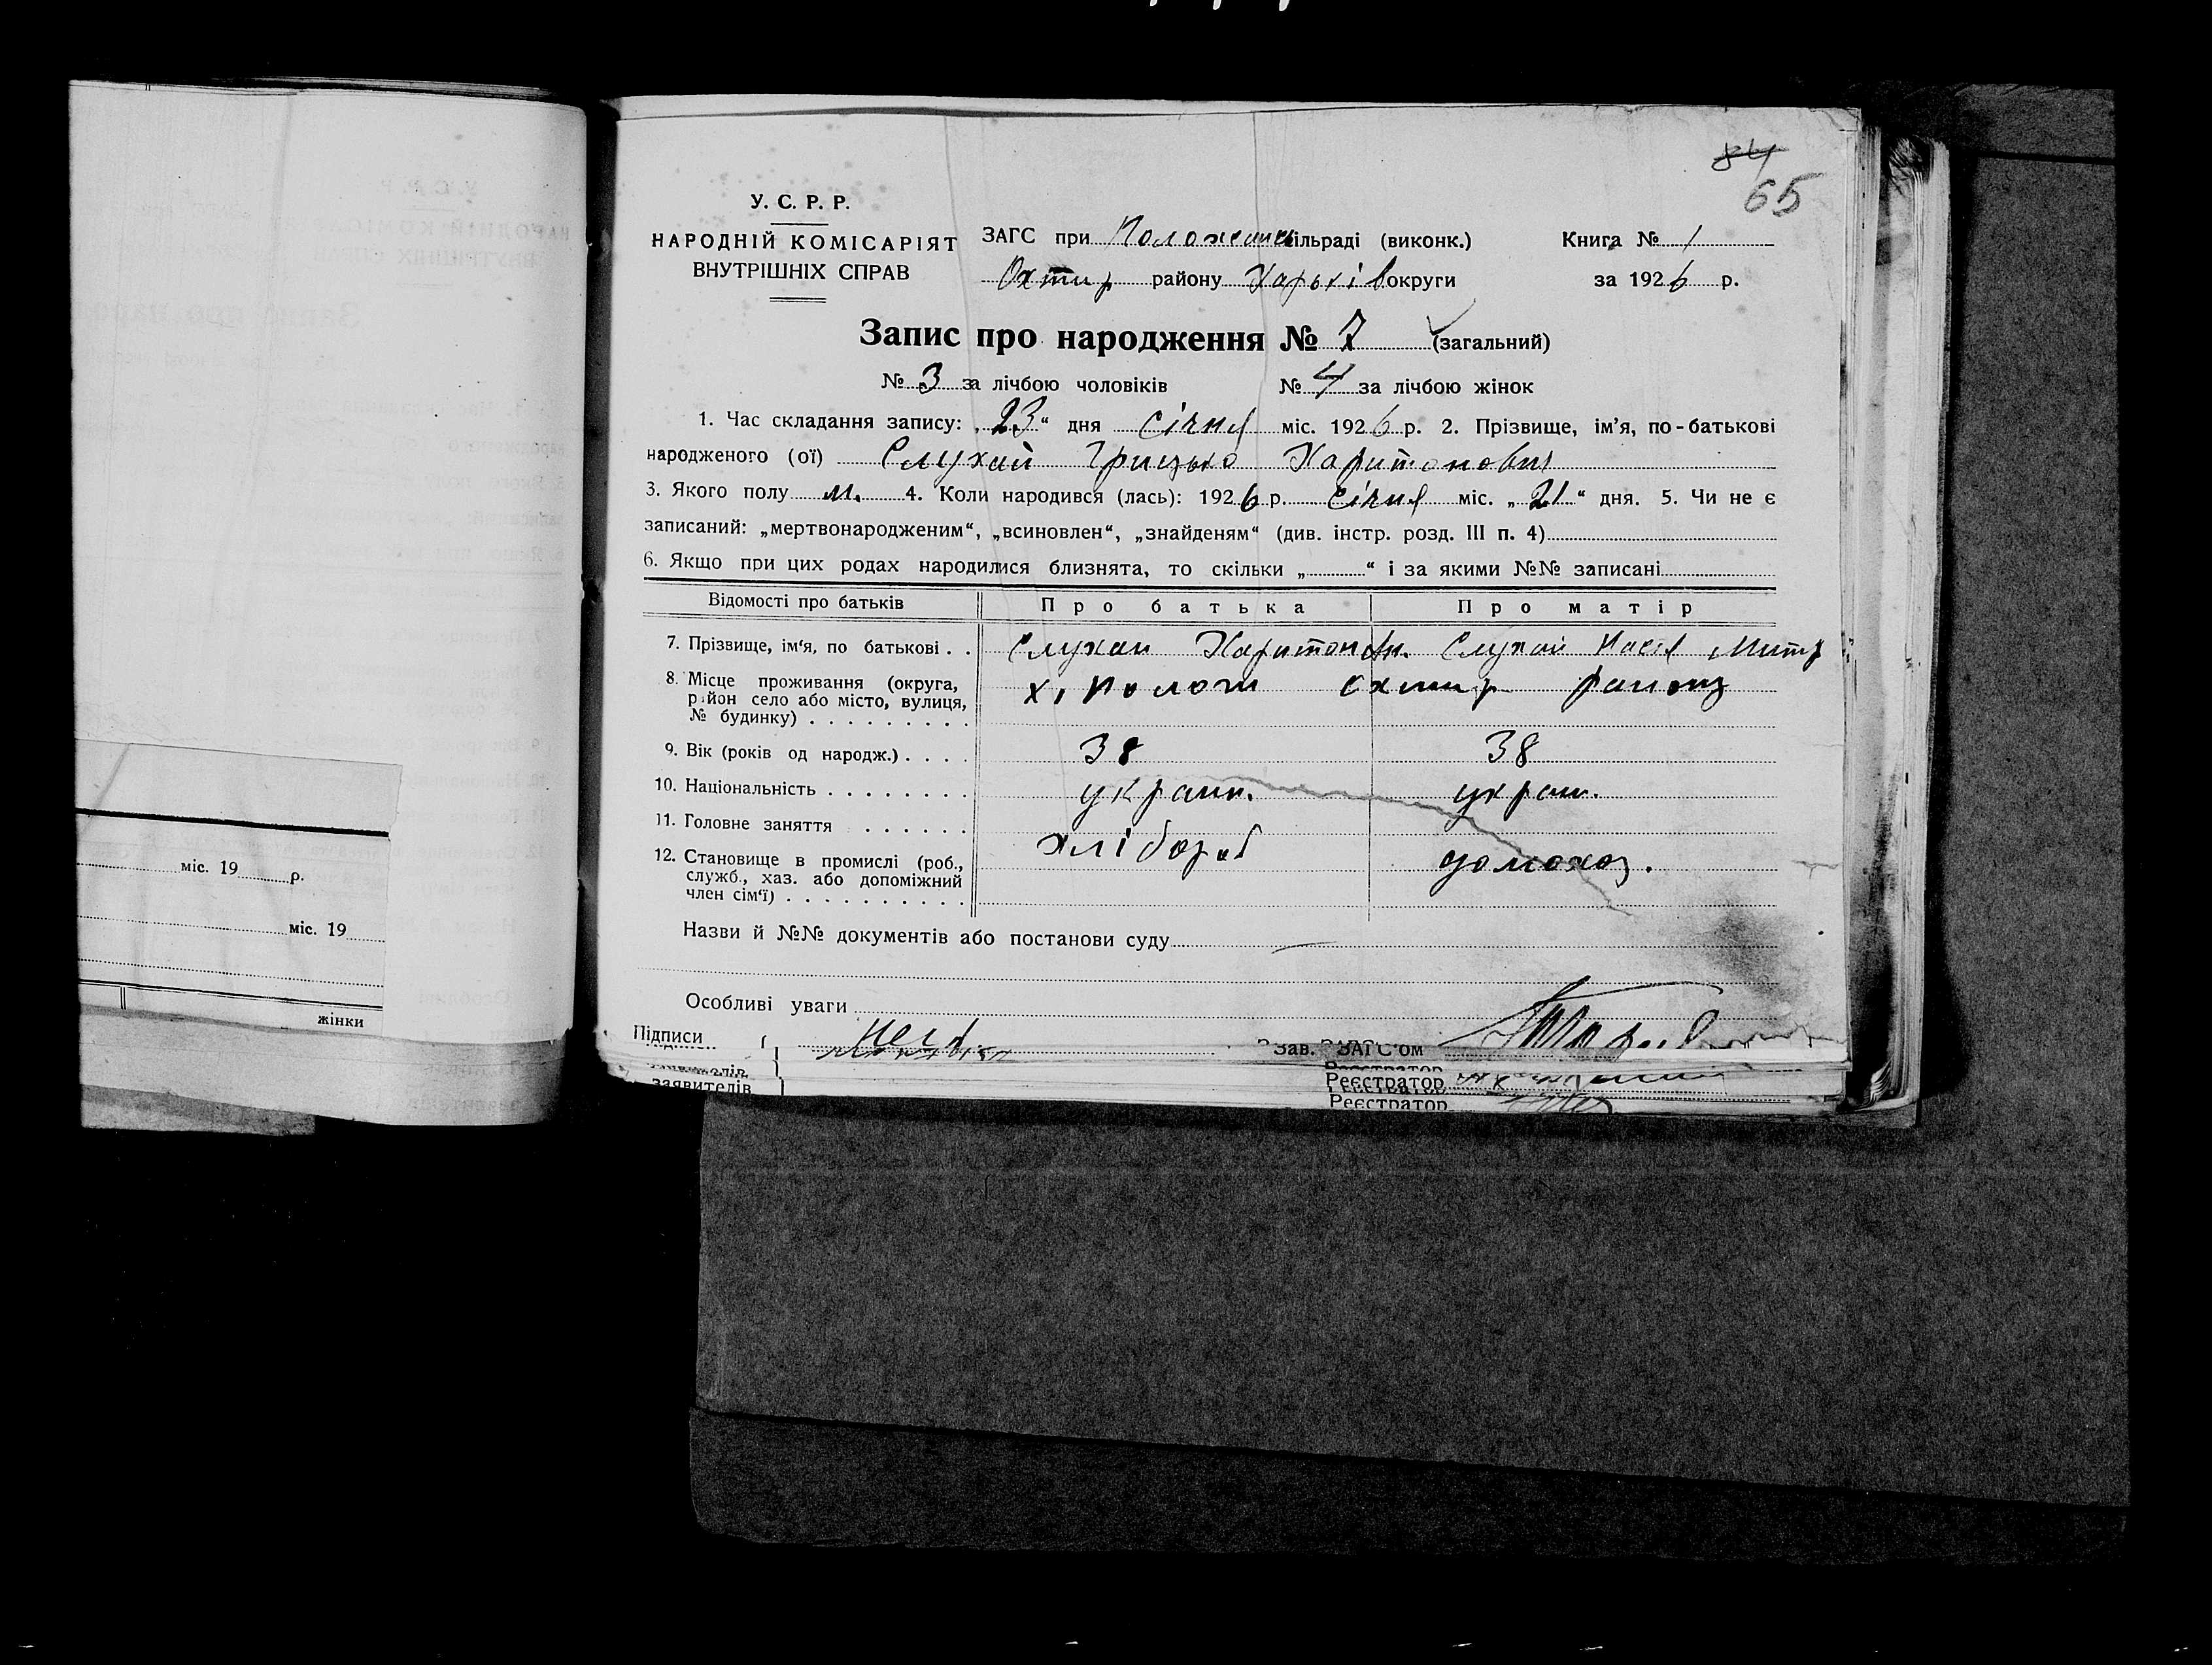 84
65
У. С. Р. Р.
НАРОДНІЙ КОМІСАРІЯТ
ВНУТРІШНІХ СПРАВ
ЗАГС при сільраді (виконк.)
Охтир району Харьків округи
Книга № 1
за 1926 р.
Запис про народження № 7 (загальний)
№ 3 за лічбою чоловіків № 4 за лічбою жінок
1. Час складання запису: „23“ дня січня міс. 1926 р. 2. Прізвище, ім’я, по-батькові
народженого (ої) Слухай Грицько Харитонович
3. Якого полу м. 4. Коли народився (лась): 1926 р. січня міс. „21“ дня. 5. Чи не є
записаний: „мертвонародженим“, „всиновлен“, „знайденям“ (див. інстр. розд. III п. 4)
6. Якщо при цих родах народилися близнята, то скільки „ “ і за якими №№ записані
Відомості про батьків Про батька Про матір
7. Прізвище, ім‘я, по батькові . . Слухай Харитон Слухай Митр
8. Місце проживання (округа, х. Полож охтир району
район село або місто, вулиця,
№ будинку) . . . . . . . . .
9. Вік (років од народж.) . . . . 38 38
10. Національність . . . . . . . . україн. украи.
11. Головне заняття . . . . . . хлібороб
12. Становище в промислі (роб., домохоз.
служб., хаз. або допоміжний
член сім‘ї) . . . . . . . . . .
Назви й №№ документів або постанови суду —
Особливі уваги
Підписи
Зав. ЗАГС‘ом
заявителів
Реєстратор
Реєстратор
міс. 19 р.
міс. 19
жінки